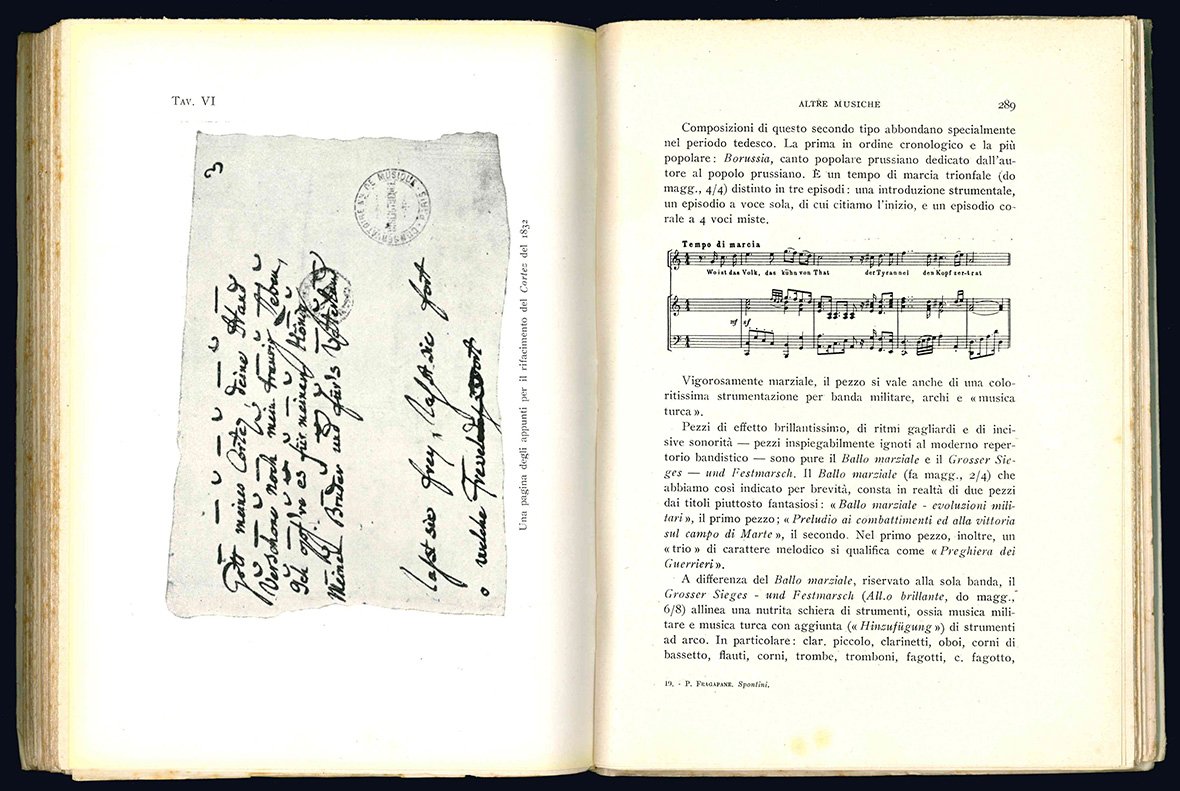 Tav. VI
3
CONSERVATOIRE DE MUSIQUE
Gott meines Cortez, deine Hand
Verschone noch mein traurig Leben,
Ich opf're es für meinen König
Meine Brüder und für's Vaterland
Lasst sie frey, lasst sie fort
o welche
Una pagina degli appunti per il rifacimento del Cortez del 1832
ALTRE MUSICHE 289
Composizioni di questo secondo tipo abbondano specialmente
nel periodo tedesco. La prima in ordine cronologico e la più
popolare: Borussia, canto popolare prussiano dedicato dall'au-
tore al popolo prussiano. È un tempo di marcia trionfale (do
magg., 4/4) distinto in tre episodi: una introduzione strumentale,
un episodio a voce sola, di cui citiamo l'inizio, e un episodio co-
rale a 4 voci miste.
Tempo di marcia
Wo ist das Volk, das kühn von That der Tyrannei den Kopf zer-trat
mf sf
Vigorosamente marziale, il pezzo si vale anche di una colo-
ritissima strumentazione per banda militare, archi e « musica
turca ».
Pezzi di effetto brillantissimo, di ritmi gagliardi e di inci-
sive sonorità — pezzi inspiegabilmente ignoti al moderno reper-
torio bandistico — sono pure il Ballo marziale e il Grosser Sie-
ges — und Festmarsch. Il Ballo marziale (fa magg., 2/4) che
abbiamo così indicato per brevità, consta in realtà di due pezzi
dai titoli piuttosto fantasiosi: « Ballo marziale - evoluzioni mili-
tari », il primo pezzo; « Preludio ai combattimenti ed alla vittoria
sul campo di Marte », il secondo. Nel primo pezzo, inoltre, un
« trio » di carattere melodico si qualifica come « Preghiera dei
Guerrieri ».
A differenza del Ballo marziale, riservato alla sola banda, il
Grosser Sieges - und Festmarsch (All.o brillante, do magg.,
6/8) allinea una nutrita schiera di strumenti, ossia musica mili-
tare e musica turca con aggiunta (« Hinzufügung ») di strumenti
ad arco. In particolare: clar. piccolo, clarinetti, oboi, corni di
bassetto, flauti, corni, trombe, tromboni, fagotti, c. fagotto,
19. - P. Fragapane. Spontini.